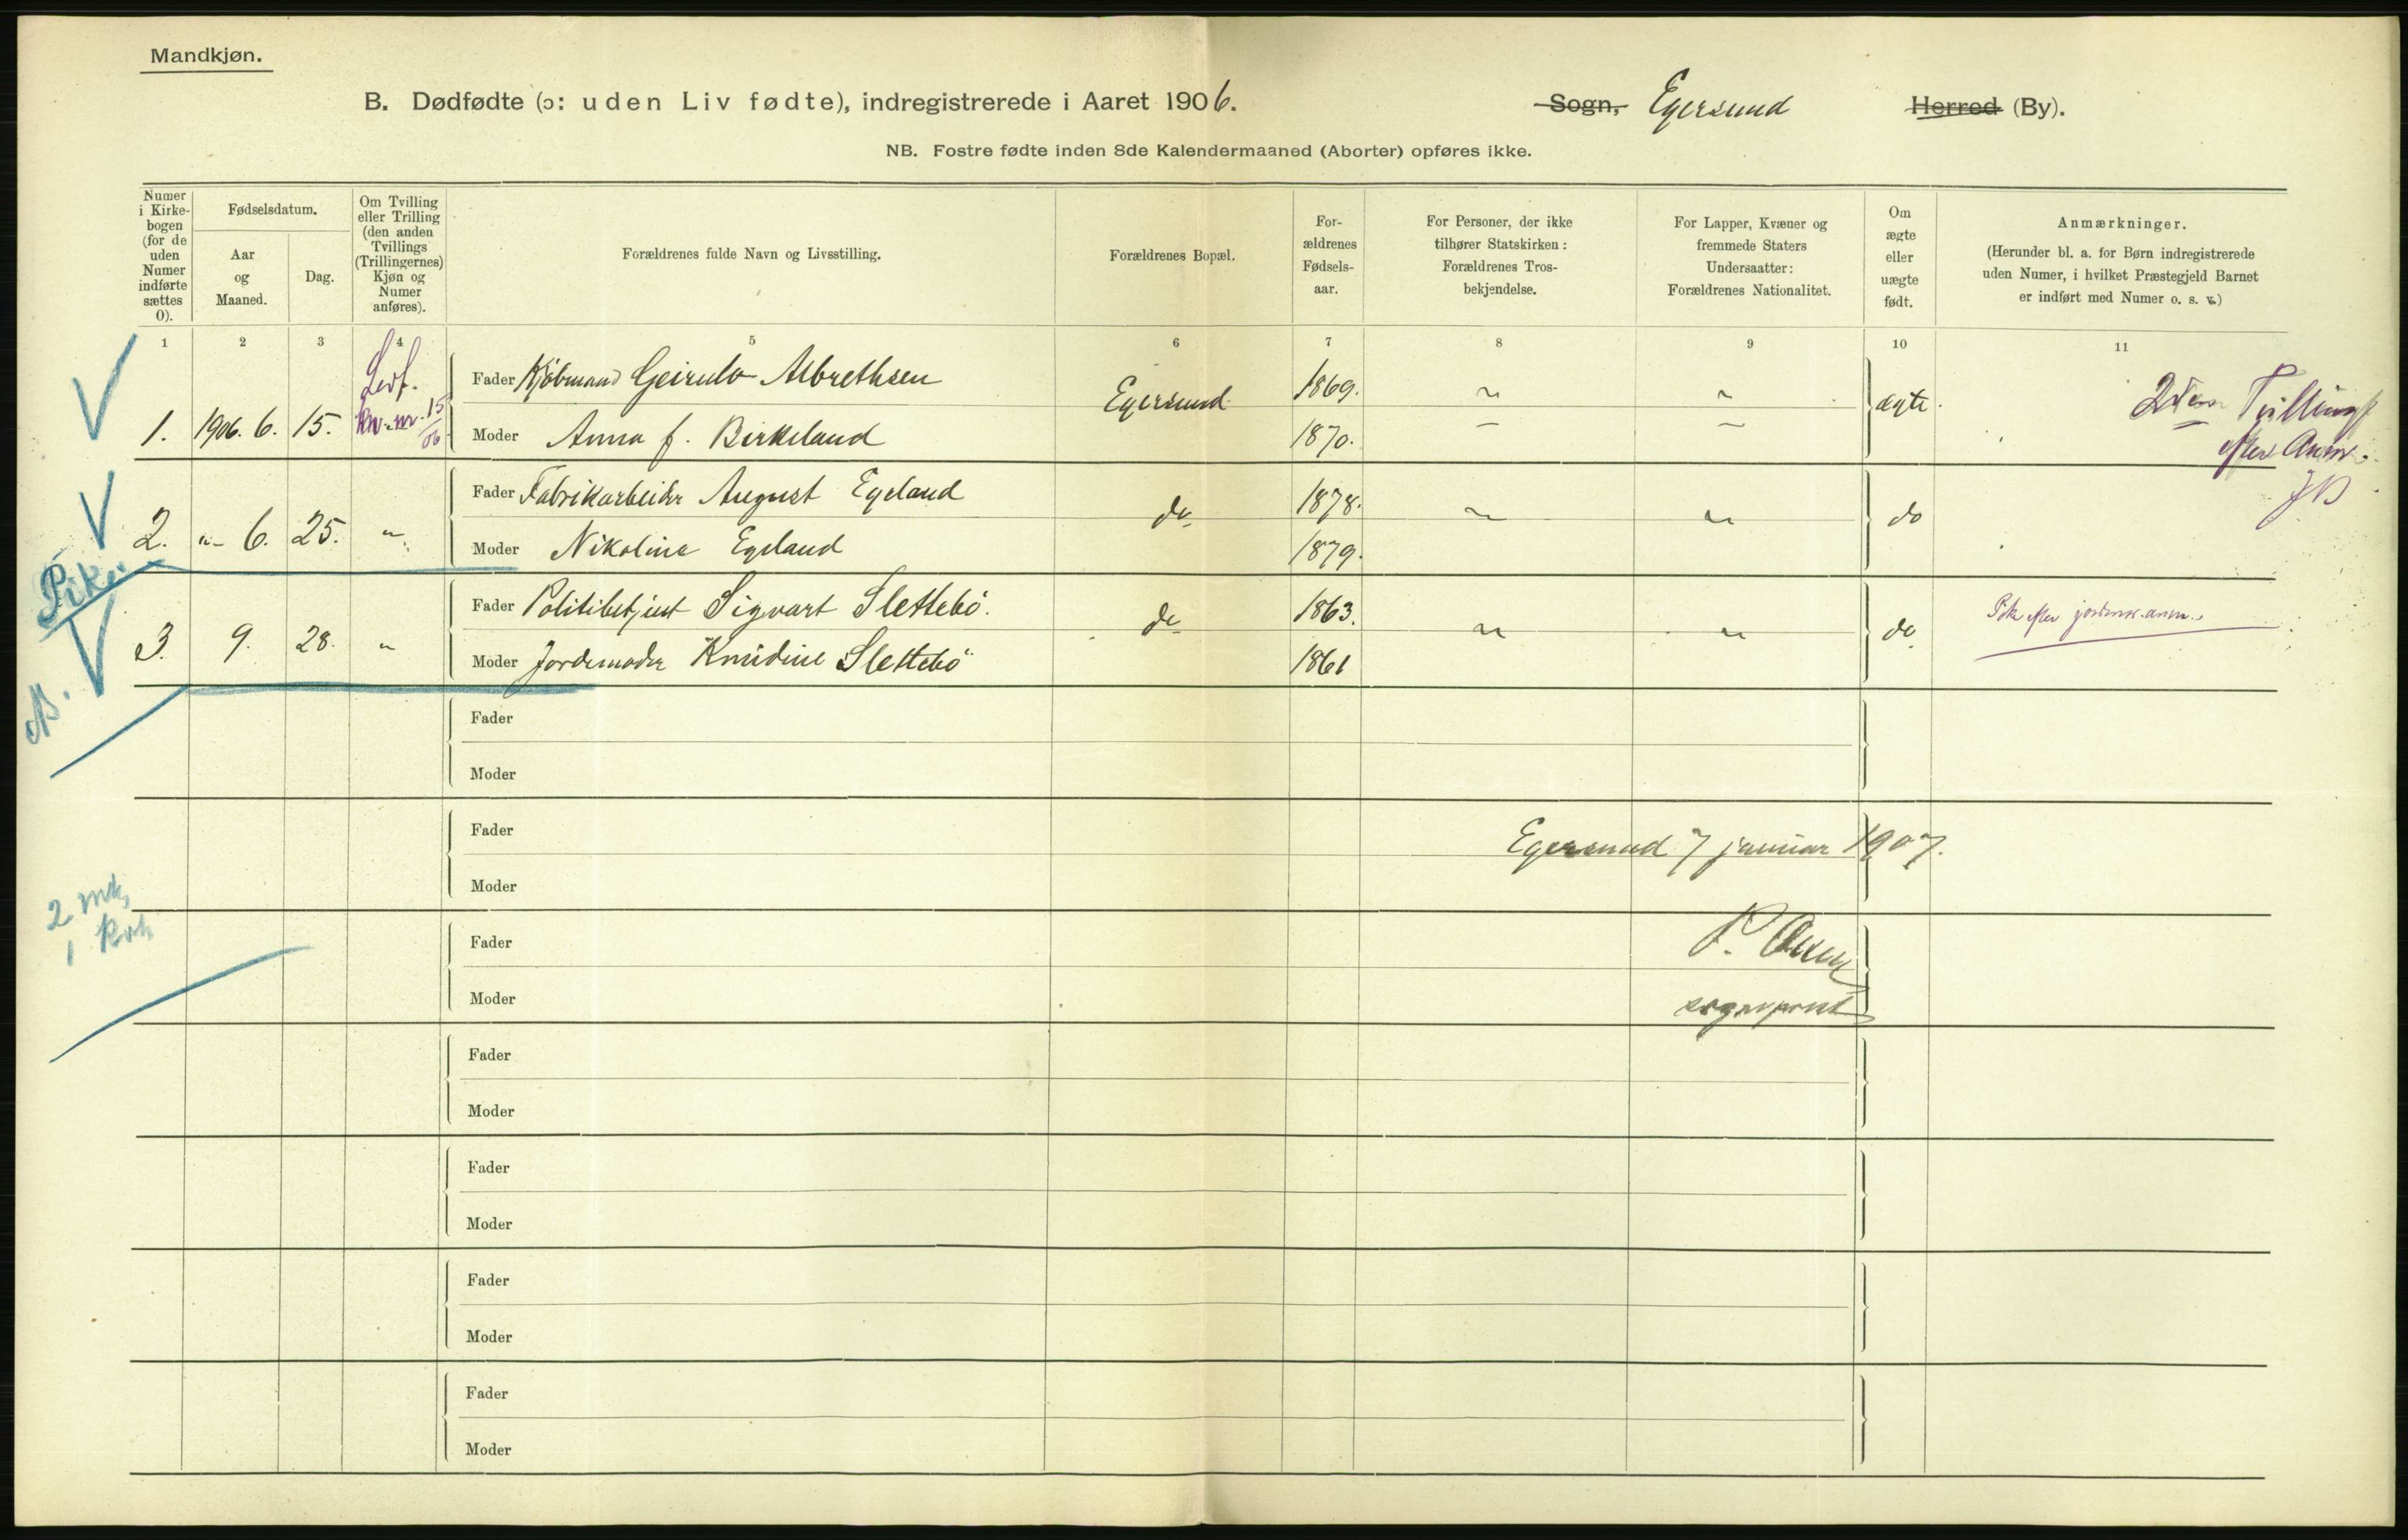 Mandkjøn.
B. Dødfødte (ɔ: uden Liv fødte), indregistrerede i Aaret 1906.
Sogn, Egersund Herred (By).
NB. Fostre fødte inden 8de Kalendermaaned (Aborter) opføres ikke.
Numer i Kirkebogen (for de uden Numer indførte sættes 0).
Fødselsdatum.
Aar og Maaned.
Dag.
Om Tvilling eller Trilling (den anden Tvillings (Trillingernes) Kjøn og Numer anføres).
Forældrenes fulde Navn og Livsstilling.
Forældrenes Bopæl.
Forældrenes Fødselsaar.
For Personer, der ikke tilhører Statskirken: Forældrenes Trosbekjendelse.
For Lapper, Kvæner og fremmede Staters Undersaatter: Forældrenes Nationalitet.
Om ægte eller uægte født.
Anmærkninger.
(Herunder bl. a. for Børn indregistrerede uden Numer, i hvilket Præstegjeld Barnet er indført med Numer o. s. v.)
1 2 3 4 5 6 7 8 9 10 11
Levf.
Kv. nr. 15/06
Fader Kjøbmand Albrethsen 1869. " "
1. 1906. 6. 15. Egersund ægte.
Moder Anna f. Birkeland 1870. — —
2den Tvilling
efter Anm.
JB
Fader Fabrikarbeider August Egeland 1878.
2. "- 6. 25. " do " " do
Moder Nikoline Egeland 1879.
Pike
Fader Politibetjent Sigvart Slettebö. 1863.
3. 9. 28. " do " " do
Moder Jordemoder Knudine Slettebö 1861
Pik efter jordmor. anm.
Fader
Moder
Fader
Egersund 7 januar 1907.
Moder
2 mk,
1 kvk
Fader
P.
Moder
sogneprest
Fader
Moder
Fader
Moder
Fader
Moder
Fader
Moder